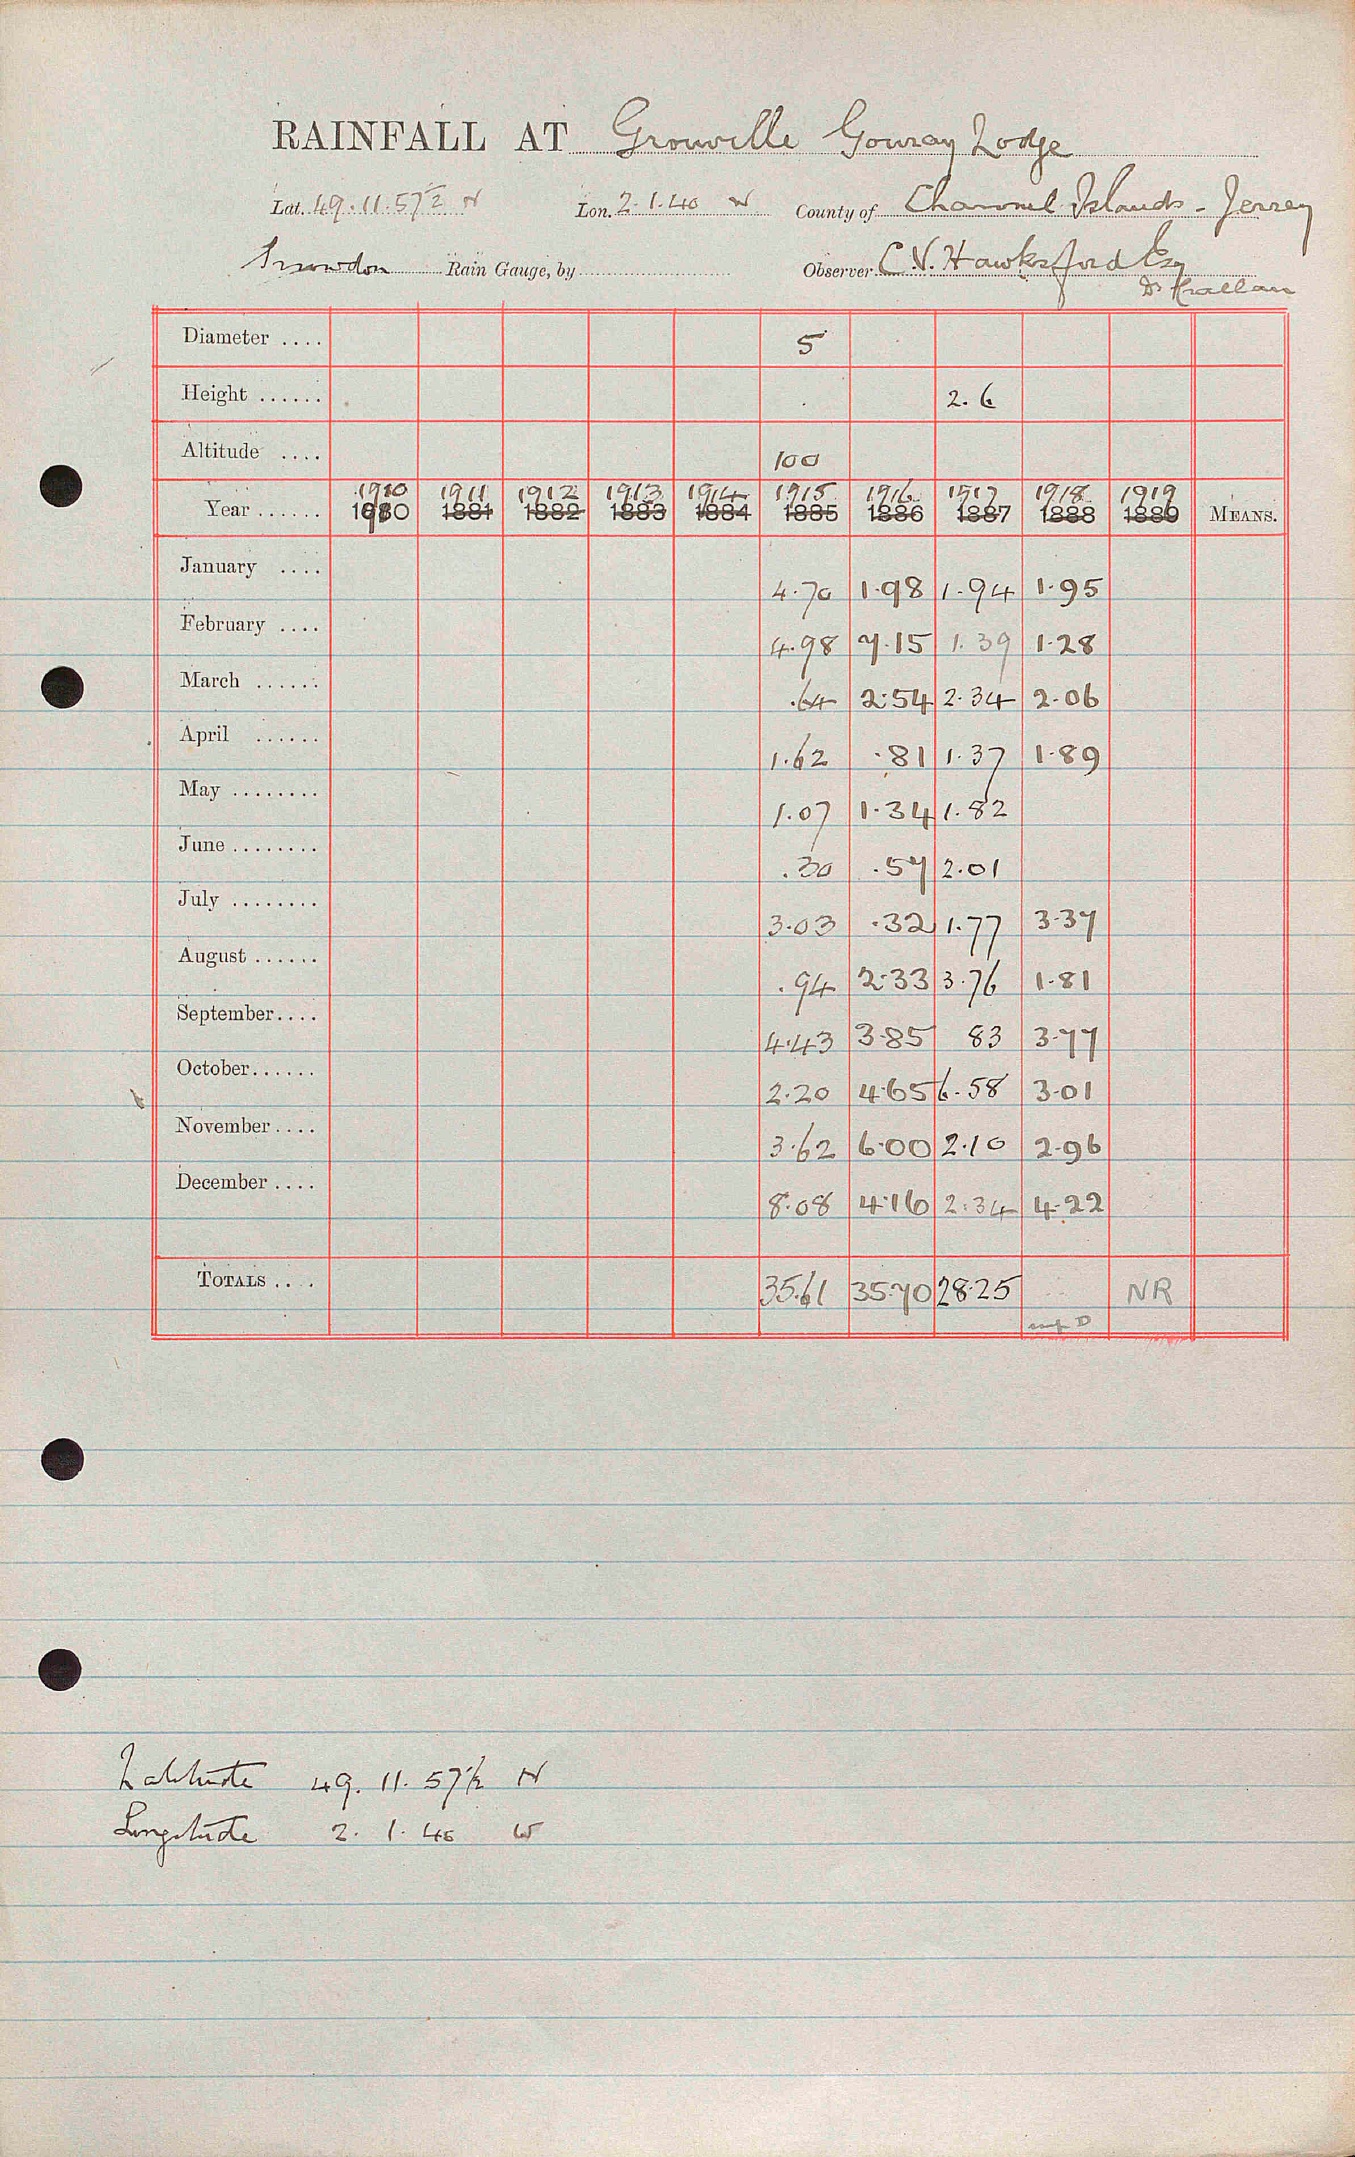 RAINFALL AT Grouville Gouray Lodge
Lat. 49.11.57½ N Lon. 2.1.40 W County of Channel Islands - Jersey
Snowdon Rain Gauge, by Observer C. V. Hawksford Esq
Dr
Diameter .... 5
Height ...... 2.6
Altitude .... 100
1910 1911 1912 1913 1914 1915 1916 1917 1918 1919
Year ...... 1880 1881 1882 1883 1884 1885 1886 1887 1888 1889 MEANS.
January .... 4.70 1.98 1.94 1.95
February .... 4.98 7.15 1.39 1.28
March ...... .64 2.54 2.34 2.06
April ...... 1.62 .81 1.37 1.89
May ........ 1.07 1.34 1.82
June ........ .30 .57 2.01
July ........ 3.03 .32 1.77 3.37
August ...... .94 2.33 3.76 1.81
September.... 4.43 3.85 83 3.77
October...... 2.20 4.65 6.58 3.01
November .... 3.62 6.00 2.10 2.96
December .... 8.08 4.16 2.34 4.22
TOTALS .... 35.61 35.70 28.25 NR
Latitude 49. 11. 57½ N
Longitude 2. 1. 40 W